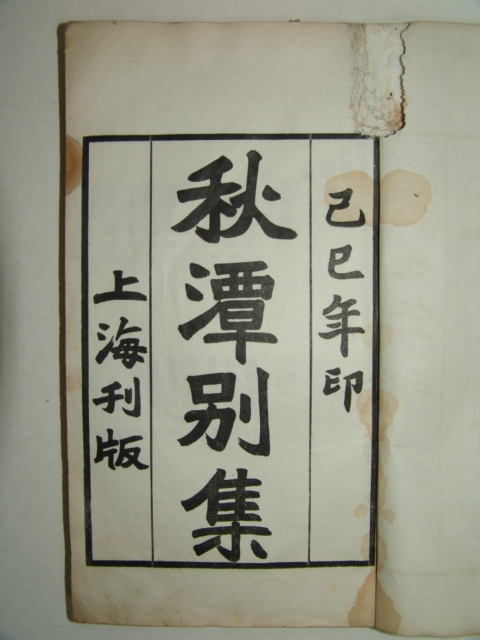 己巳年印
秋潭别集
上海刊版